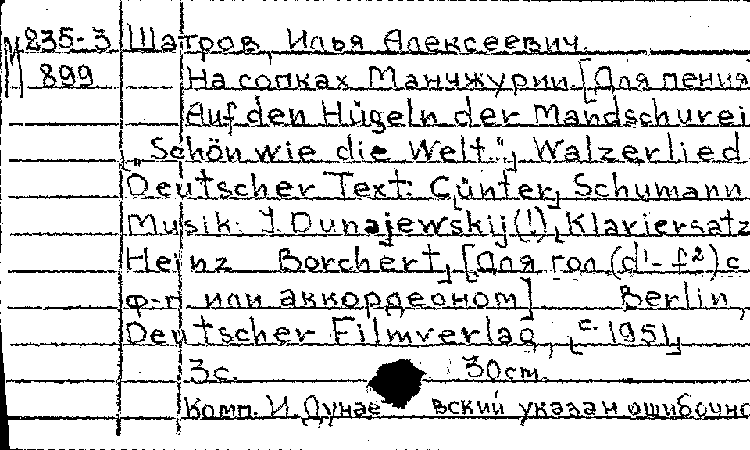 М 235-3 Шатров, Илья Алексеевич.
899 На сопках Манчжурии [Для пения
Auf den Hügeln der Mandschurei
„Schön wie die Welt.", Walzerlied
Deutscher Text: Günter Schumann
Musik: I Dunajewskij(!), Klaviersatz
Heinz Borchert, [Для гол (d¹-f²) с
ф-п или аккордеоном] Berlin,
Deutscher Filmverlag, [c. 1951]
3с. 30cm.
Комп. И. Дунаевский указан ошибочно